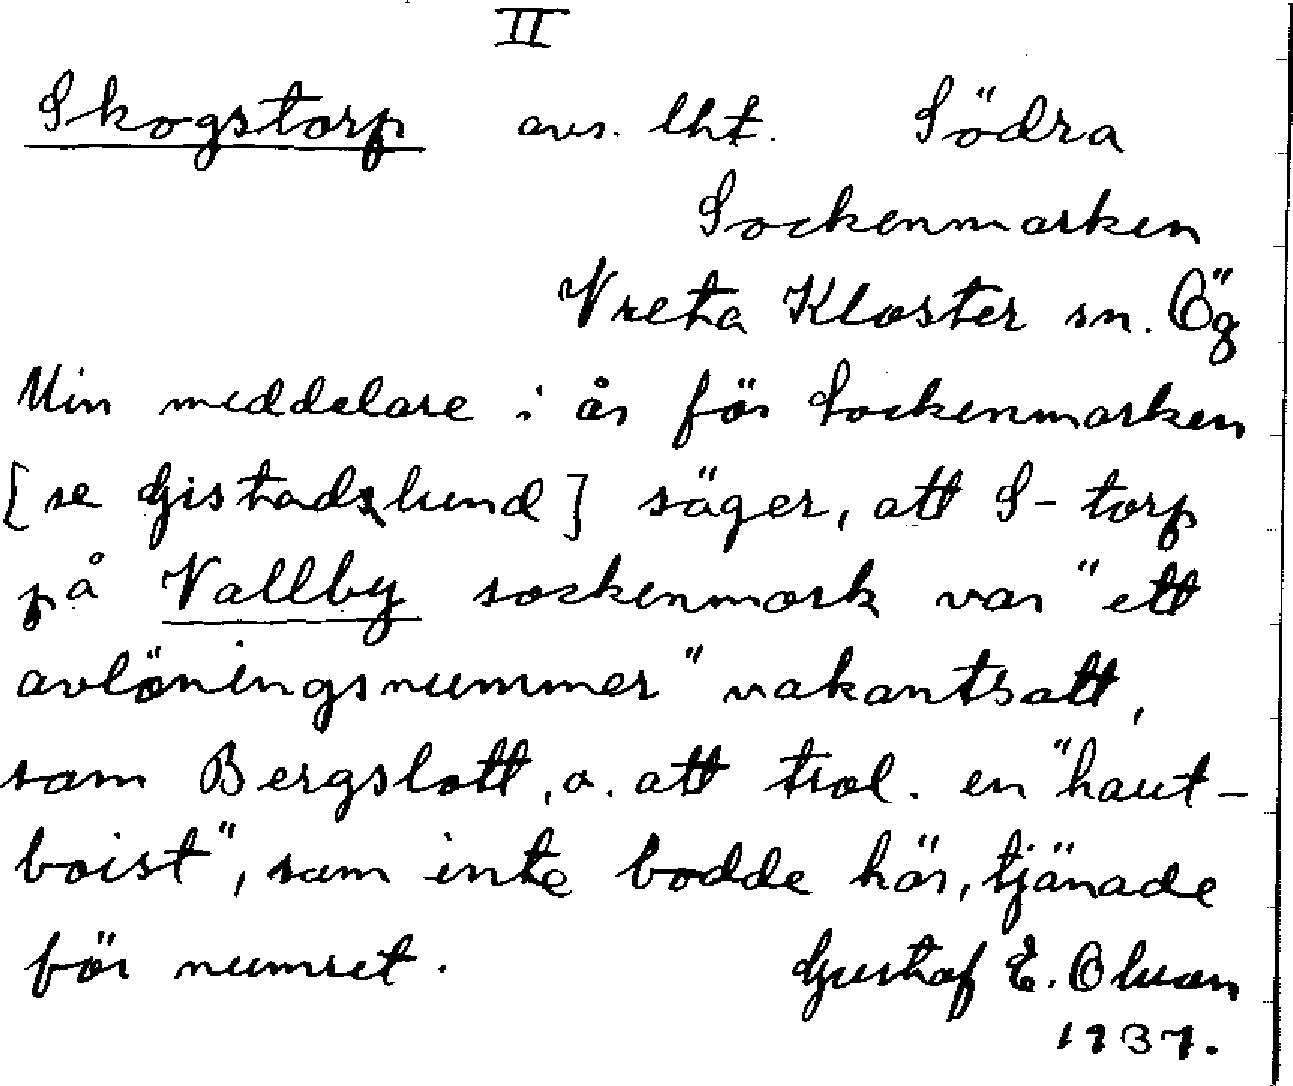 II
Skogstorp avs. lht. Södra
Sockenmarken
Vreta Kloster sn. Ög
Min meddelare i år för Sockenmarken
[se Gistadslund] säger, att S-torp
på Vallby sockenmark var "ett
avlöningsnummer" vakantsatt,
som Bergslott, o. att trol. en "haut-
boist", som inte bodde här, tjänade
för numret.
Gustaf E. Olsson
1937.